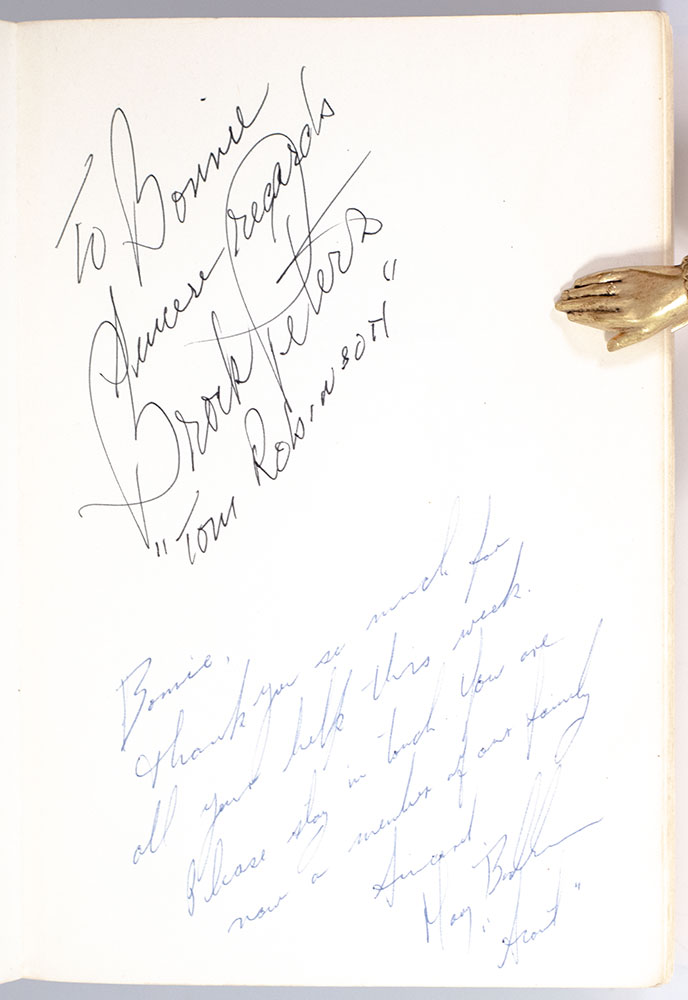 To Bonnie
Sincere regards
Brock Peters
"Tom Robinson"
Bonnie,
Thank you so much for
all your help this week.
Please stay in touch. You are
now a member of our family
Mary Badham
"Scout"